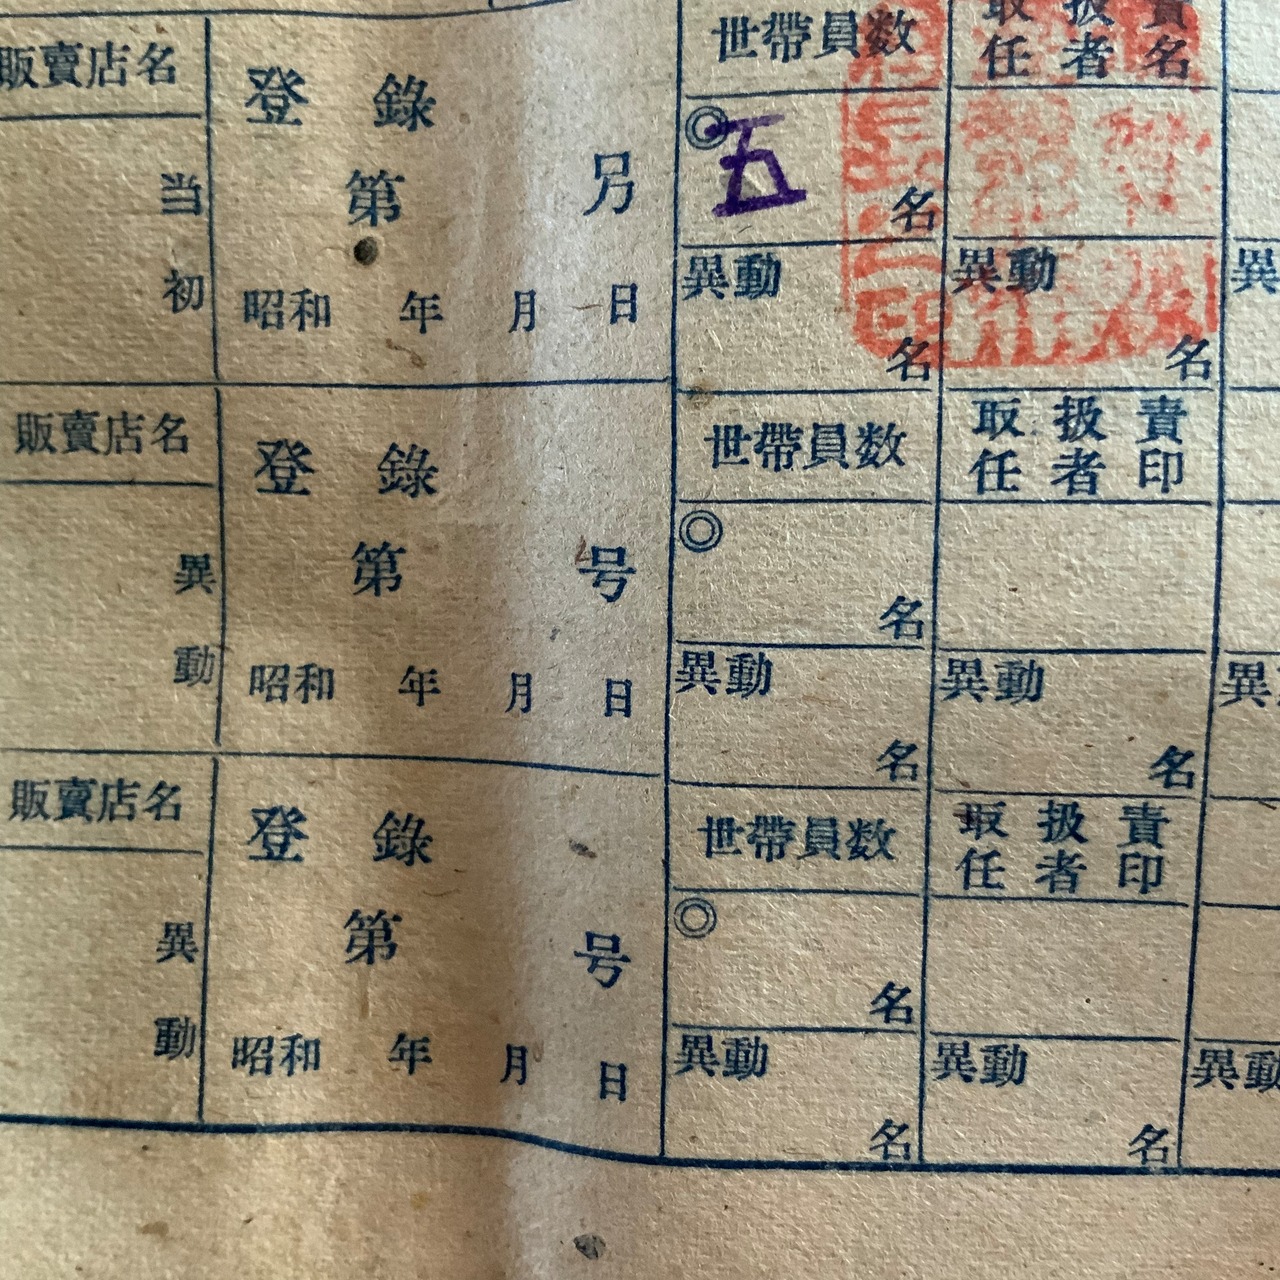 販賣店名
当
初
登錄
第 号
昭和 年 月 日
世帶員数
◎五
名
異動
名
取扱責
任者名
異動
名
異
販賣店名
異
動
登錄
第 号
昭和 年 月 日
世帶員数
◎
名
異動
名
取扱責
任者印
異動
名
異動
販賣店名
異
動
登錄
第 号
昭和 年 月 日
世帶員数
◎
名
異動
名
取扱責
任者印
異動
名
異動